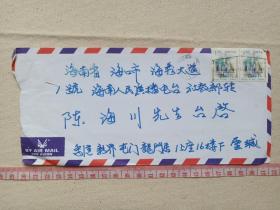 海南省 海口市 海秀大道
1号 海南人民广播电台 社教部转
陈 海 川 先 生 台 啓
香港 新界 屯门 龍門居 12座16楼下 雲城
BY AIR MAIL
PAR AVION